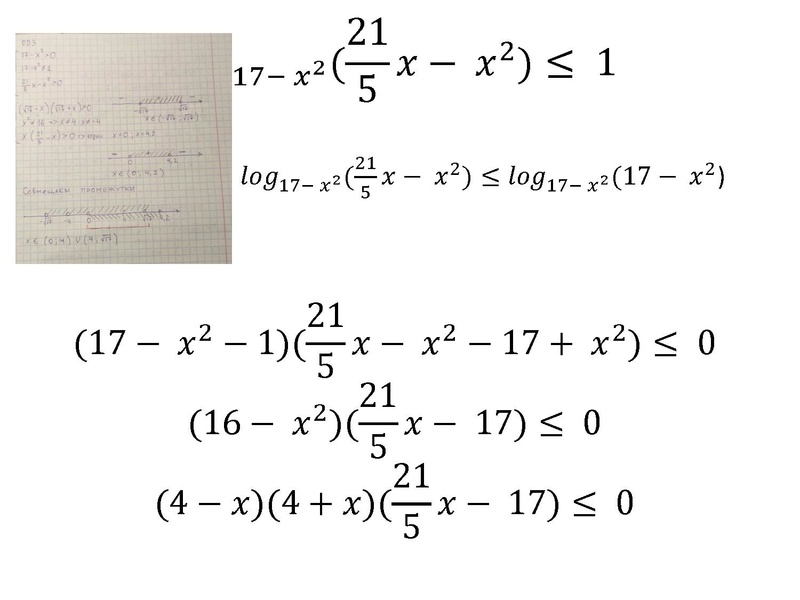 ОДЗ
17-x²>0
17-x²≠1
21/5 x-x²>0
(√17-x)(√17+x)>0
x∈(-√17;√17)
x²≠16 => x≠4, x≠-4
x(21/5-x)>0 => корни x=0, x=4,2
0 4,2
x∈(0;4,2)
Совмещаем промежутки
x∈(0;4)∪(4;√17)
17− x²(21/5 x − x²) ≤ 1
log17− x²(21/5 x − x²) ≤ log17− x²(17 − x²)
(17 − x² − 1)(21/5 x − x² − 17 + x²) ≤ 0
(16 − x²)(21/5 x − 17) ≤ 0
(4 − x)(4 + x)(21/5 x − 17) ≤ 0